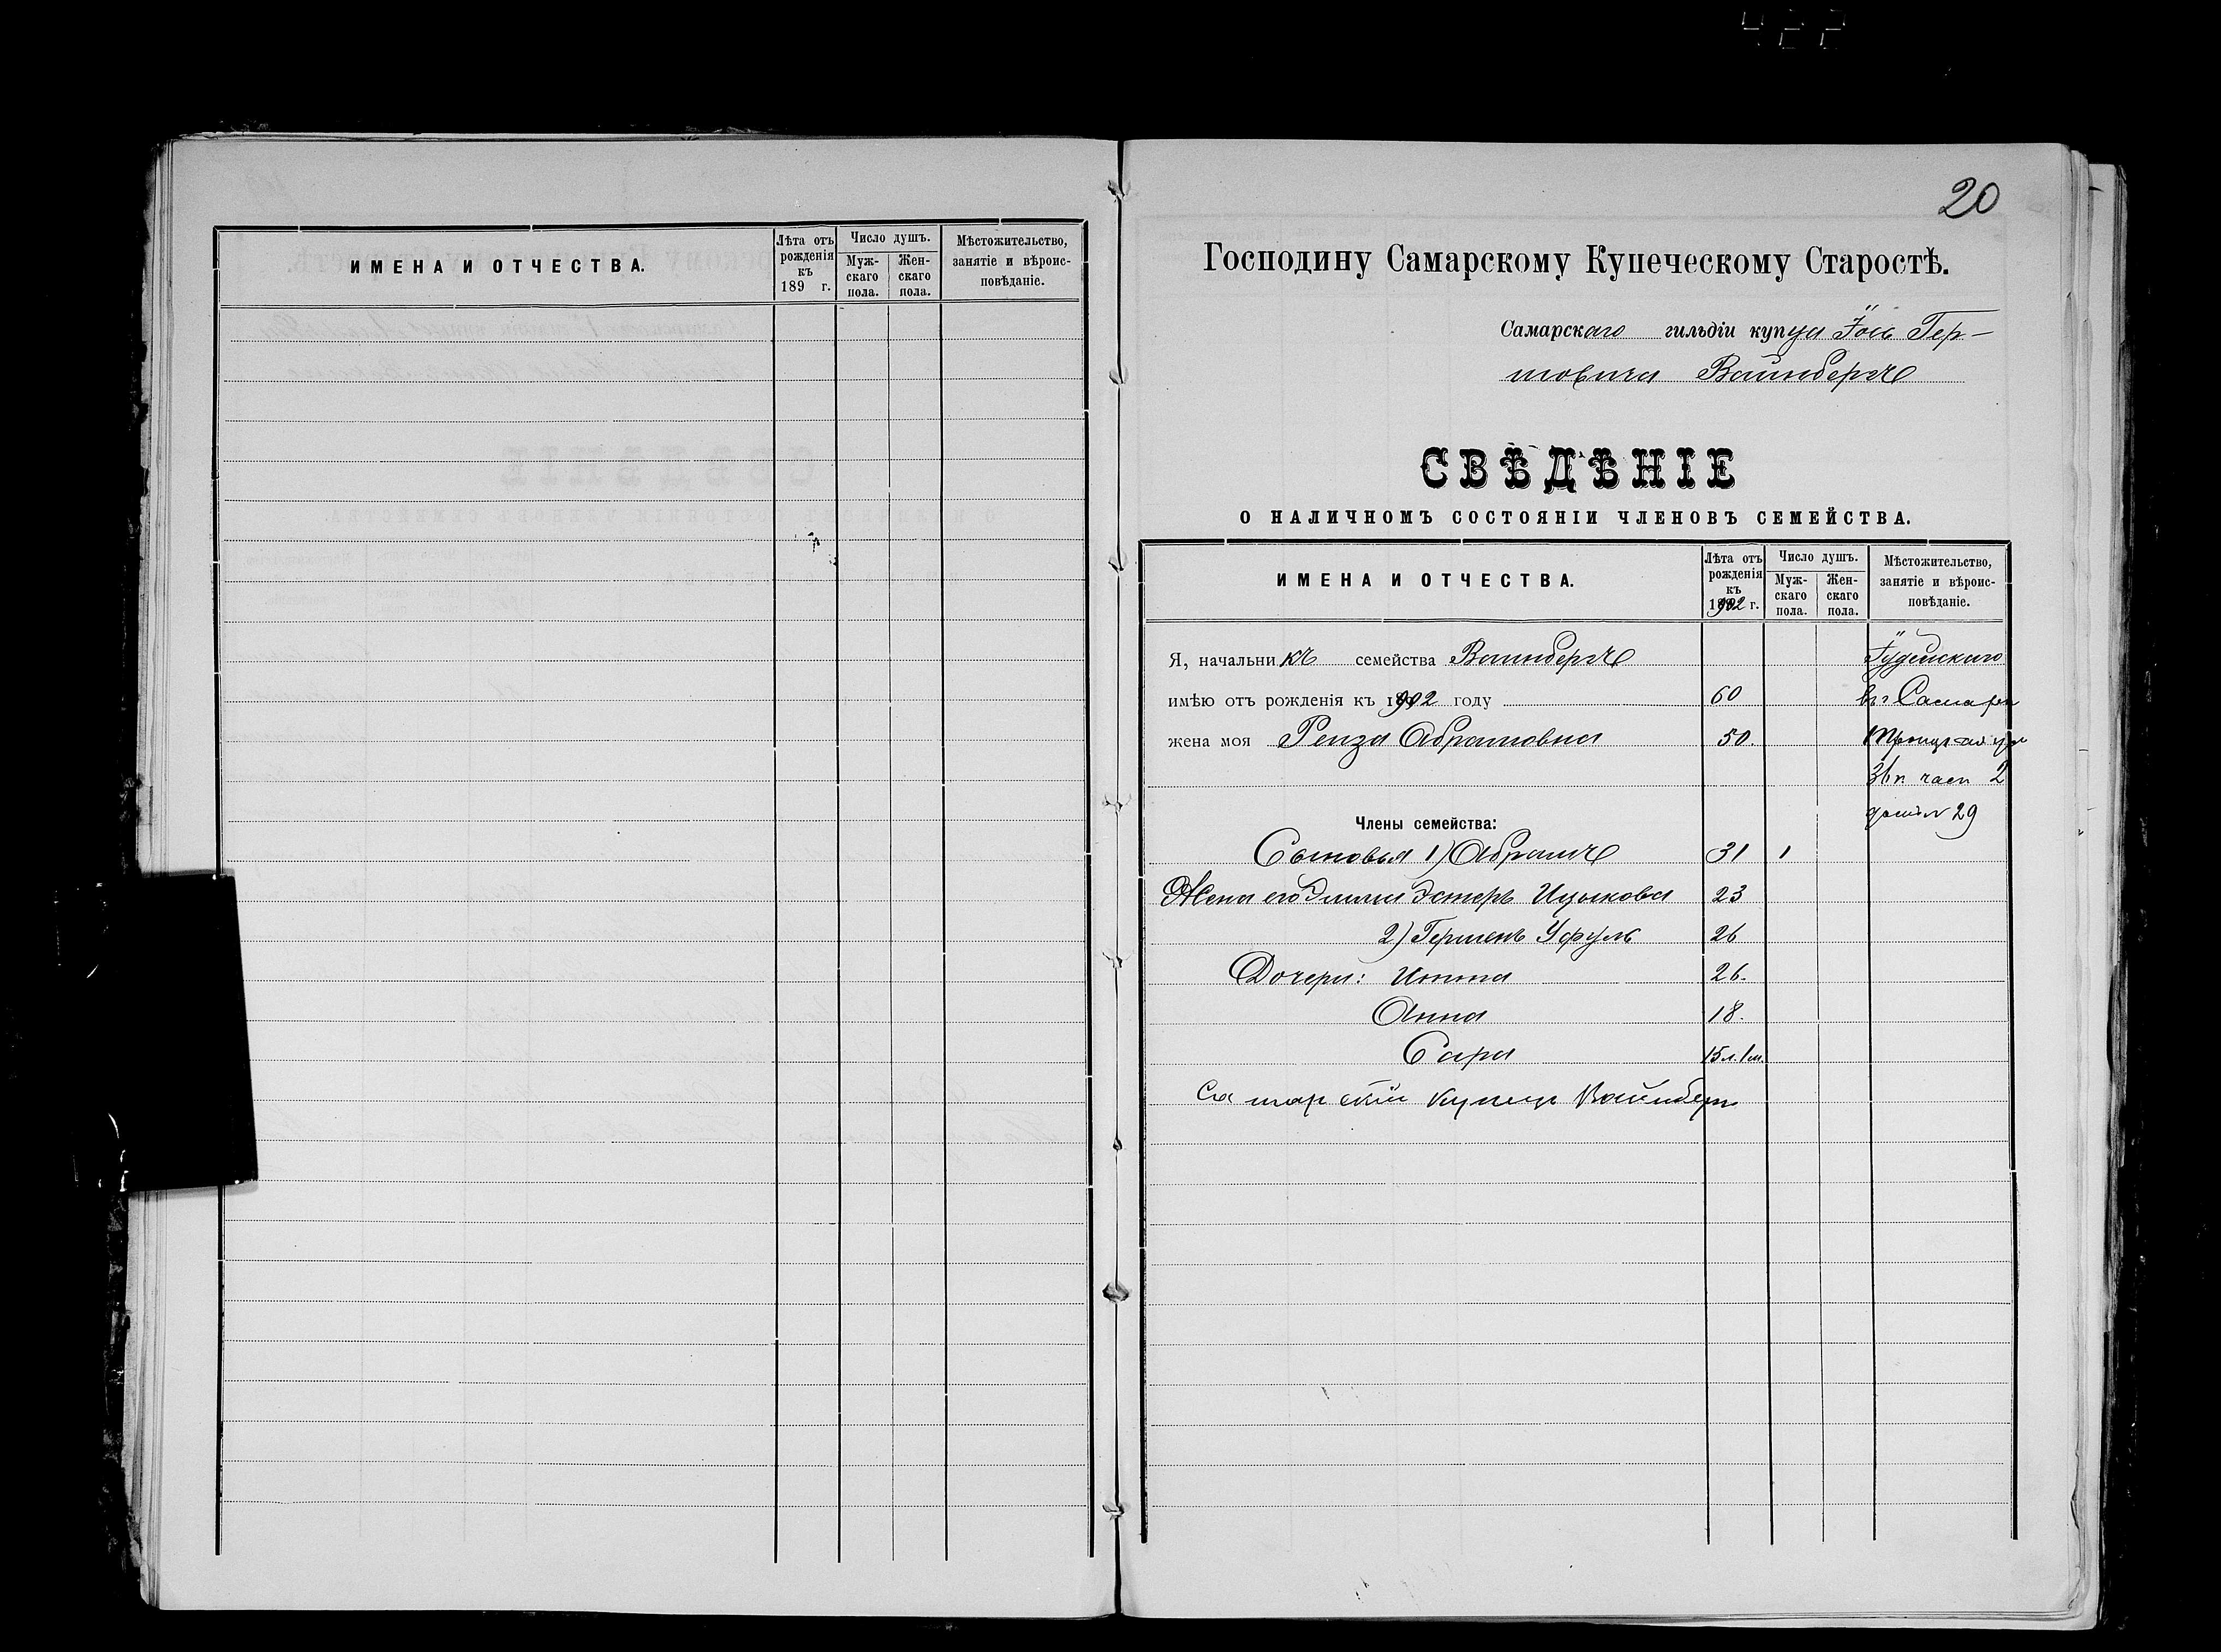 422
ИМЕНА И ОТЧЕСТВА.
Лѣта отъ рожденія къ 189 г.
Число душъ.
Мужскаго пола.
Женскаго пола.
Мѣстожительство, занятіе и вѣроисповѣданіе.
20
Господину Самарскому Купеческому Старостѣ.
Самарскаго гильдіи купца Гер-
шовича Вайнбергъ
СВѢДѢНІЕ
О НАЛИЧНОМЪ СОСТОЯНІИ ЧЛЕНОВЪ СЕМЕЙСТВА.
ИМЕНА И ОТЧЕСТВА.
Лѣта отъ рожденія къ 1902 г.
Число душъ.
Мужскаго пола.
Женскаго пола.
Мѣстожительство, занятіе и вѣроисповѣданіе.
Я, начальникъ семейства Вайнбергъ Іудейскаго
имѣю отъ рожденія къ 1902 году 60 въ г Самарѣ
жена моя Рейза Абрамовна 50.
част 2
Члены семейства: домъ № 29
Сыновья 1) Абрамъ 31 1
Жена его Эстеръ Ицькова 23
2) Гершенъ 26
Дочери: 26.
Анна 18.
Сара 15 л. 1 м.
Самарскій купецъ Вайнбергъ